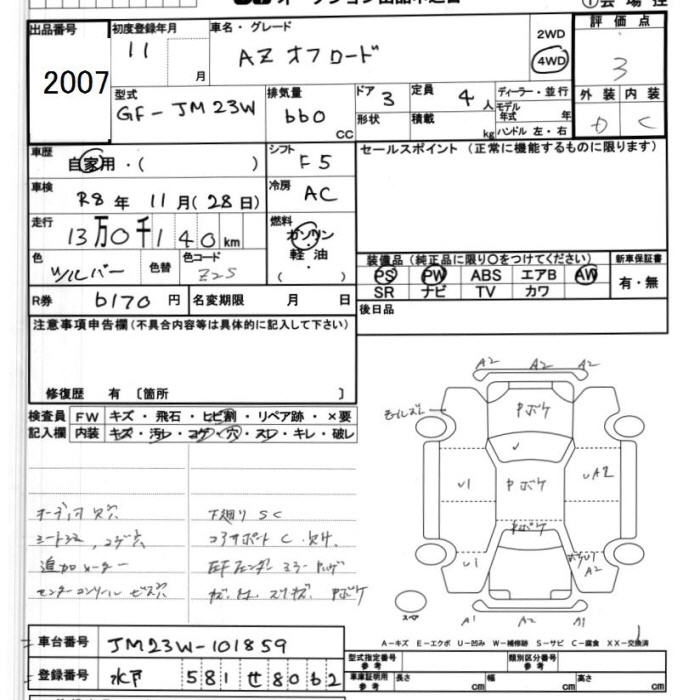 出品番号
2007
初度登録年月
11
月
車名・グレード
AZオフロード
2WD
4WD
評価点
3
型式
GF-JM23W
排気量
660
CC
ドア
3
形状
定員
4 人
積載
kg
ディーラー・並行
モデル年式
年
ハンドル 左・右
外装
内装
D
C
車歴
自家用・( )
シフト
F5
セールスポイント (正常に機能するものに限ります)
車検
R8 年 11 月 (28 日)
冷房
AC
走行
13 万 0 千 140 km
燃料
ガソリン
軽油
( )
色
シルバー
色替
色コード
Z2S
装備品 (純正品に限り〇をつけてください)
新車保証書
PS PW ABS エアB AW
SR ナビ TV カワ
有・無
R券
6170 円
名変期限
月 日
後日品
注意事項申告欄 (不具合内容等は具体的に記入して下さい)
修復歴 有 〔箇所 〕
検査員
記入欄
FW キズ・飛石・ヒビ割・リペア跡・×要
内装 キズ・汚レ・コゲ・穴・スレ・キレ・破レ
オーディオ欠穴
下廻り SC
シートシミ、コゲ穴
コアサポート C・欠ケ
追加メーター
センターコンソール ビス穴
A2 A2 A2
Pボケ
U1
Pボケ
UA2
Pボケ
U1
ボケU1
A2
スペア
A1 A2 A1
A-キズ E-エクボ U-凹み W-補修跡 S-サビ C-腐食 XX-交換済
車台番号
JM23W-101859
登録番号
水戸 581 せ 8062
型式指定番号
参考
類別区分番号
参考
車庫証明用
参考
長さ cm
幅 cm
高さ cm